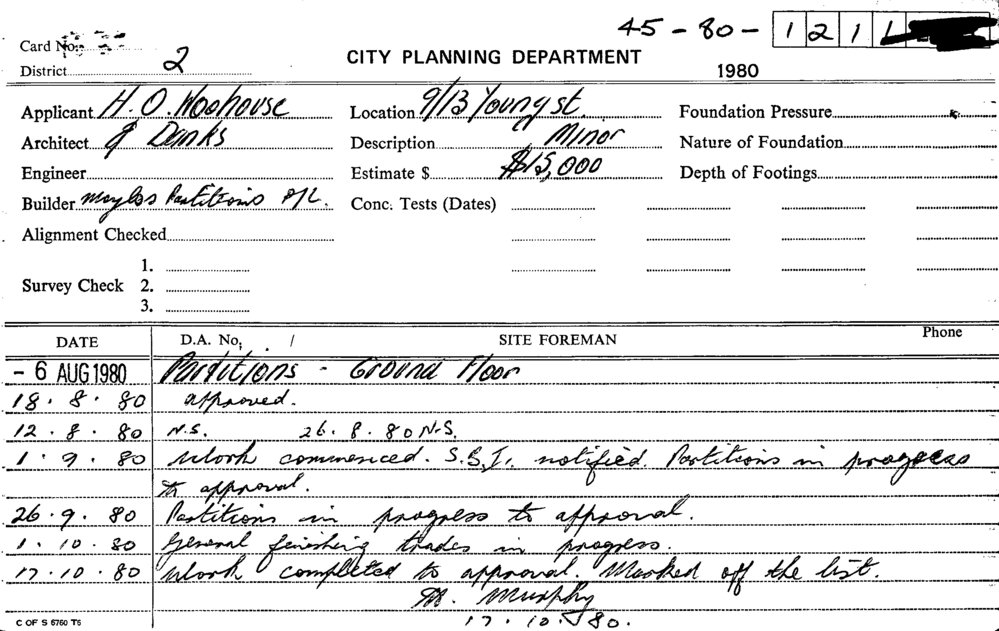 45-80-1211
Card No.
District 2
CITY PLANNING DEPARTMENT
1980
Applicant H. O. Woohouse
Location 9/13 Young st.
Foundation Pressure
Architect & Danks
Description Minor
Nature of Foundation
Engineer
Estimate $ $15,000
Depth of Footings
Builder Partitions P/L.
Conc. Tests (Dates)
Alignment Checked
1.
Survey Check 2.
3.
DATE D.A. No. / SITE FOREMAN Phone
- 6 AUG 1980 Partitions - Ground Floor
18.8.80 approved.
12.8.80 N.S. 26.8.80 N.S.
1.9.80 Work commenced. S.S.I. notified. Partitions in progress
to approval.
26.9.80 Partitions in progress to approval.
1.10.80 General finishing trades in progress.
17.10.80 Work completed to approval. Marked off the list.
M. Murphy
17.10.80.
C OF S 6760 T5